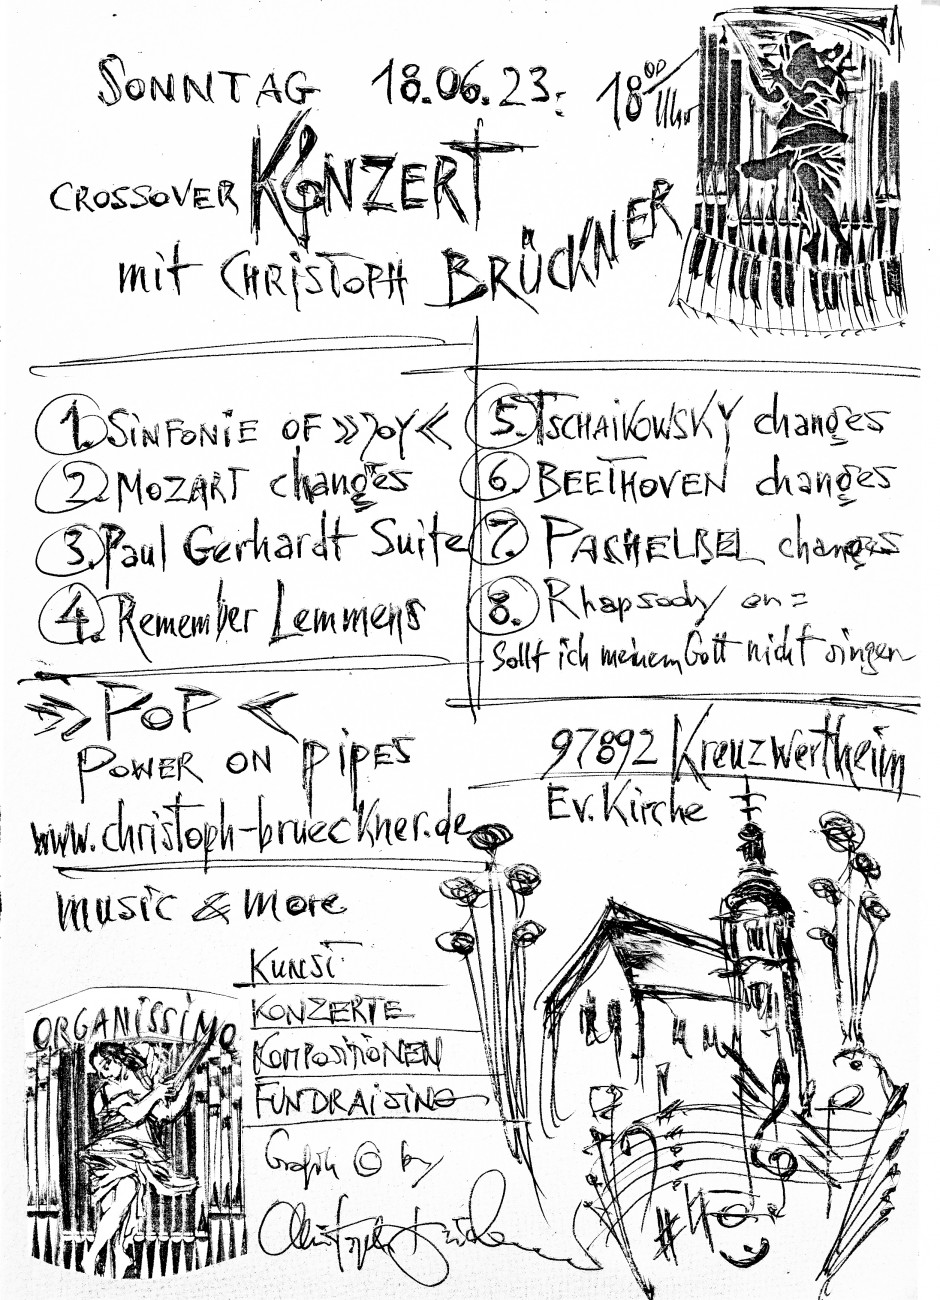 SONNTAG 18.06.23: 18⁰⁰ Uhr
CROSSOVER KONZERT
mit CHRISTOPH BRÜCKNER
1. SINFONIE OF »JOY«
2. MOZART changes
3. Paul Gerhardt Suite
4. Remember Lemmens
5. TSCHAIKOWSKY changes
6. BEETHOVEN changes
7. PACHELBEL changes
8. Rhapsody on =
Sollt ich meinem Gott nicht singen
»POP«
POWER ON pipes
www.christoph-brueckner.de
music & more
97892 Kreuzwertheim
Ev. Kirche
KUNST
KONZERTE
KOMPOSITIONEN
FUNDRAISING
ORGANISSIMO
Grafik © by
Christoph Brückner